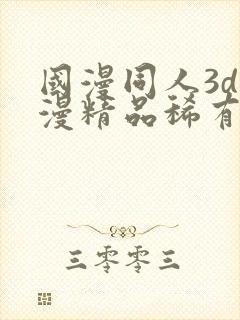 國漫同人3d
漫精品稀有
三零零三